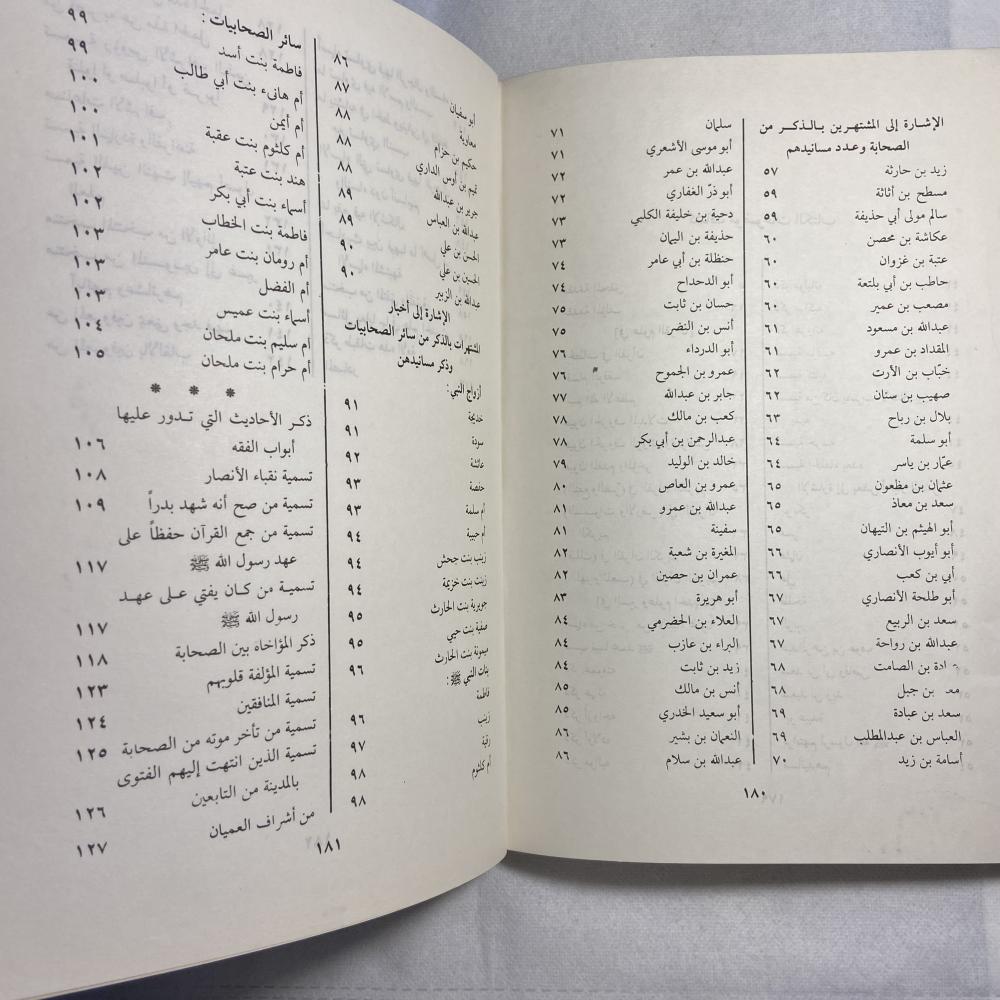 الإشارة إلى المشتهرين بالذكر من
الصحابة وعدد مسانيدهم
زيد بن حارثة ٥٧
مسطح بن أثاثة ٥٩
سالم مولى أبي حذيفة ٥٩
عكاشة بن محصن ٦٠
عتبة بن غزوان ٦٠
حاطب بن أبي بلتعة ٦٠
مصعب بن عمير ٦٠
عبدالله بن مسعود ٦١
المقداد بن عمرو ٦١
خبّاب بن الأرت ٦٢
صهيب بن سنان ٦٢
بلال بن رباح ٦٣
أبو سلمة ٦٤
عمّار بن ياسر ٦٤
عثمان بن مظعون ٦٥
سعد بن معاذ ٦٥
أبو الهيثم بن التيهان ٦٥
أبو أيوب الأنصاري ٦٦
أبي بن كعب ٦٦
أبو طلحة الأنصاري ٦٧
سعد بن الربيع ٦٧
عبدالله بن رواحة ٦٧
بن الصامت ٦٨
بن جبل ٦٨
سعد بن عبادة ٦٩
العباس بن عبدالمطلب ٦٩
أسامة بن زيد ٧٠
سلمان ٧١
أبو موسى الأشعري ٧١
عبدالله بن عمر ٧٢
أبو ذرّ الغفاري ٧٢
دحية بن خليفة الكلبي ٧٣
حذيفة بن اليمان ٧٣
حنظلة بن أبي عامر ٧٤
أبو الدحداح ٧٤
حسان بن ثابت ٧٥
أنس بن النضر ٧٥
أبو الدرداء ٧٦
عمرو بن الجموح ٧٦
جابر بن عبدالله ٧٧
كعب بن مالك ٧٨
عبدالرحمن بن أبي بكر ٧٨
خالد بن الوليد ٧٩
عمرو بن العاص ٨٠
عبدالله بن عمرو ٨١
سفينة ٨١
المغيرة بن شعبة ٨٢
عمران بن حصين ٨٢
أبو هريرة ٨٣
العلاء بن الحضرمي ٨٤
البراء بن عازب ٨٤
زيد بن ثابت ٨٤
أنس بن مالك ٨٥
أبو سعيد الخدري ٨٥
النعمان بن بشير ٨٦
عبدالله بن سلام ٨٦
١٨٠
أبو سفيان ٨٦
معاوية ٨٧
حكيم بن حزام ٨٨
تميم بن أوس الداري ٨٨
جرير بن عبدالله ٨٨
عبدالله بن العباس ٨٩
الحسن بن علي ٨٩
الحسين بن علي ٩٠
عبدالله بن الزبير ٩٠
الإشارة إلى أخبار
المشتهرات بالذكر من سائر الصحابيات
وذكر مسانيدهن
أزواج النبي :
خديجة ٩١
سودة ٩١
عائشة ٩٢
حفصة ٩٣
أم سلمة ٩٣
أم حبيبة ٩٤
زينب بنت جحش ٩٤
زينت بنت خزيمة ٩٤
جويرية بنت الحارث ٩٥
صفية بنت حيي ٩٥
ميمونة بنت الحارث ٩٦
بنات النبي ﷺ :
فاطمة ٩٦
زينب ٩٧
رقية ٩٨
أم كلثوم ٩٨
سائر الصحابيات : ٩٩
فاطمة بنت أسد ٩٩
أم هانىء بنت أبي طالب ١٠٠
أم أيمن ١٠٠
أم كلثوم بنت عقبة ١٠١
هند بنت عتبة ١٠٢
أسماء بنت أبي بكر ١٠٢
فاطمة بنت الخطاب ١٠٣
أم رومان بنت عامر ١٠٣
أم الفضل ١٠٣
أسماء بنت عميس ١٠٤
أم سليم بنت ملحان ١٠٥
أم حرام بنت ملحان
* * *
ذكر الأحاديث التي تدور عليها
أبواب الفقه ١٠٦
تسمية نقباء الأنصار ١٠٨
تسمية من صح أنه شهد بدراً ١٠٩
تسمية من جمع القرآن حفظاً على
عهد رسول الله ﷺ ١١٧
تسمية من كان يفتي على عهد
رسول الله ﷺ ١١٧
ذكر المؤاخاه بين الصحابة ١١٨
تسمية المؤلفة قلوبهم ١٢٣
تسمية المنافقين ١٢٤
تسمية من تأخر موته من الصحابة ١٢٥
تسمية الذين انتهت إليهم الفتوى
بالمدينة من التابعين ١٢٦
من أشراف العميان ١٢٧
١٨١